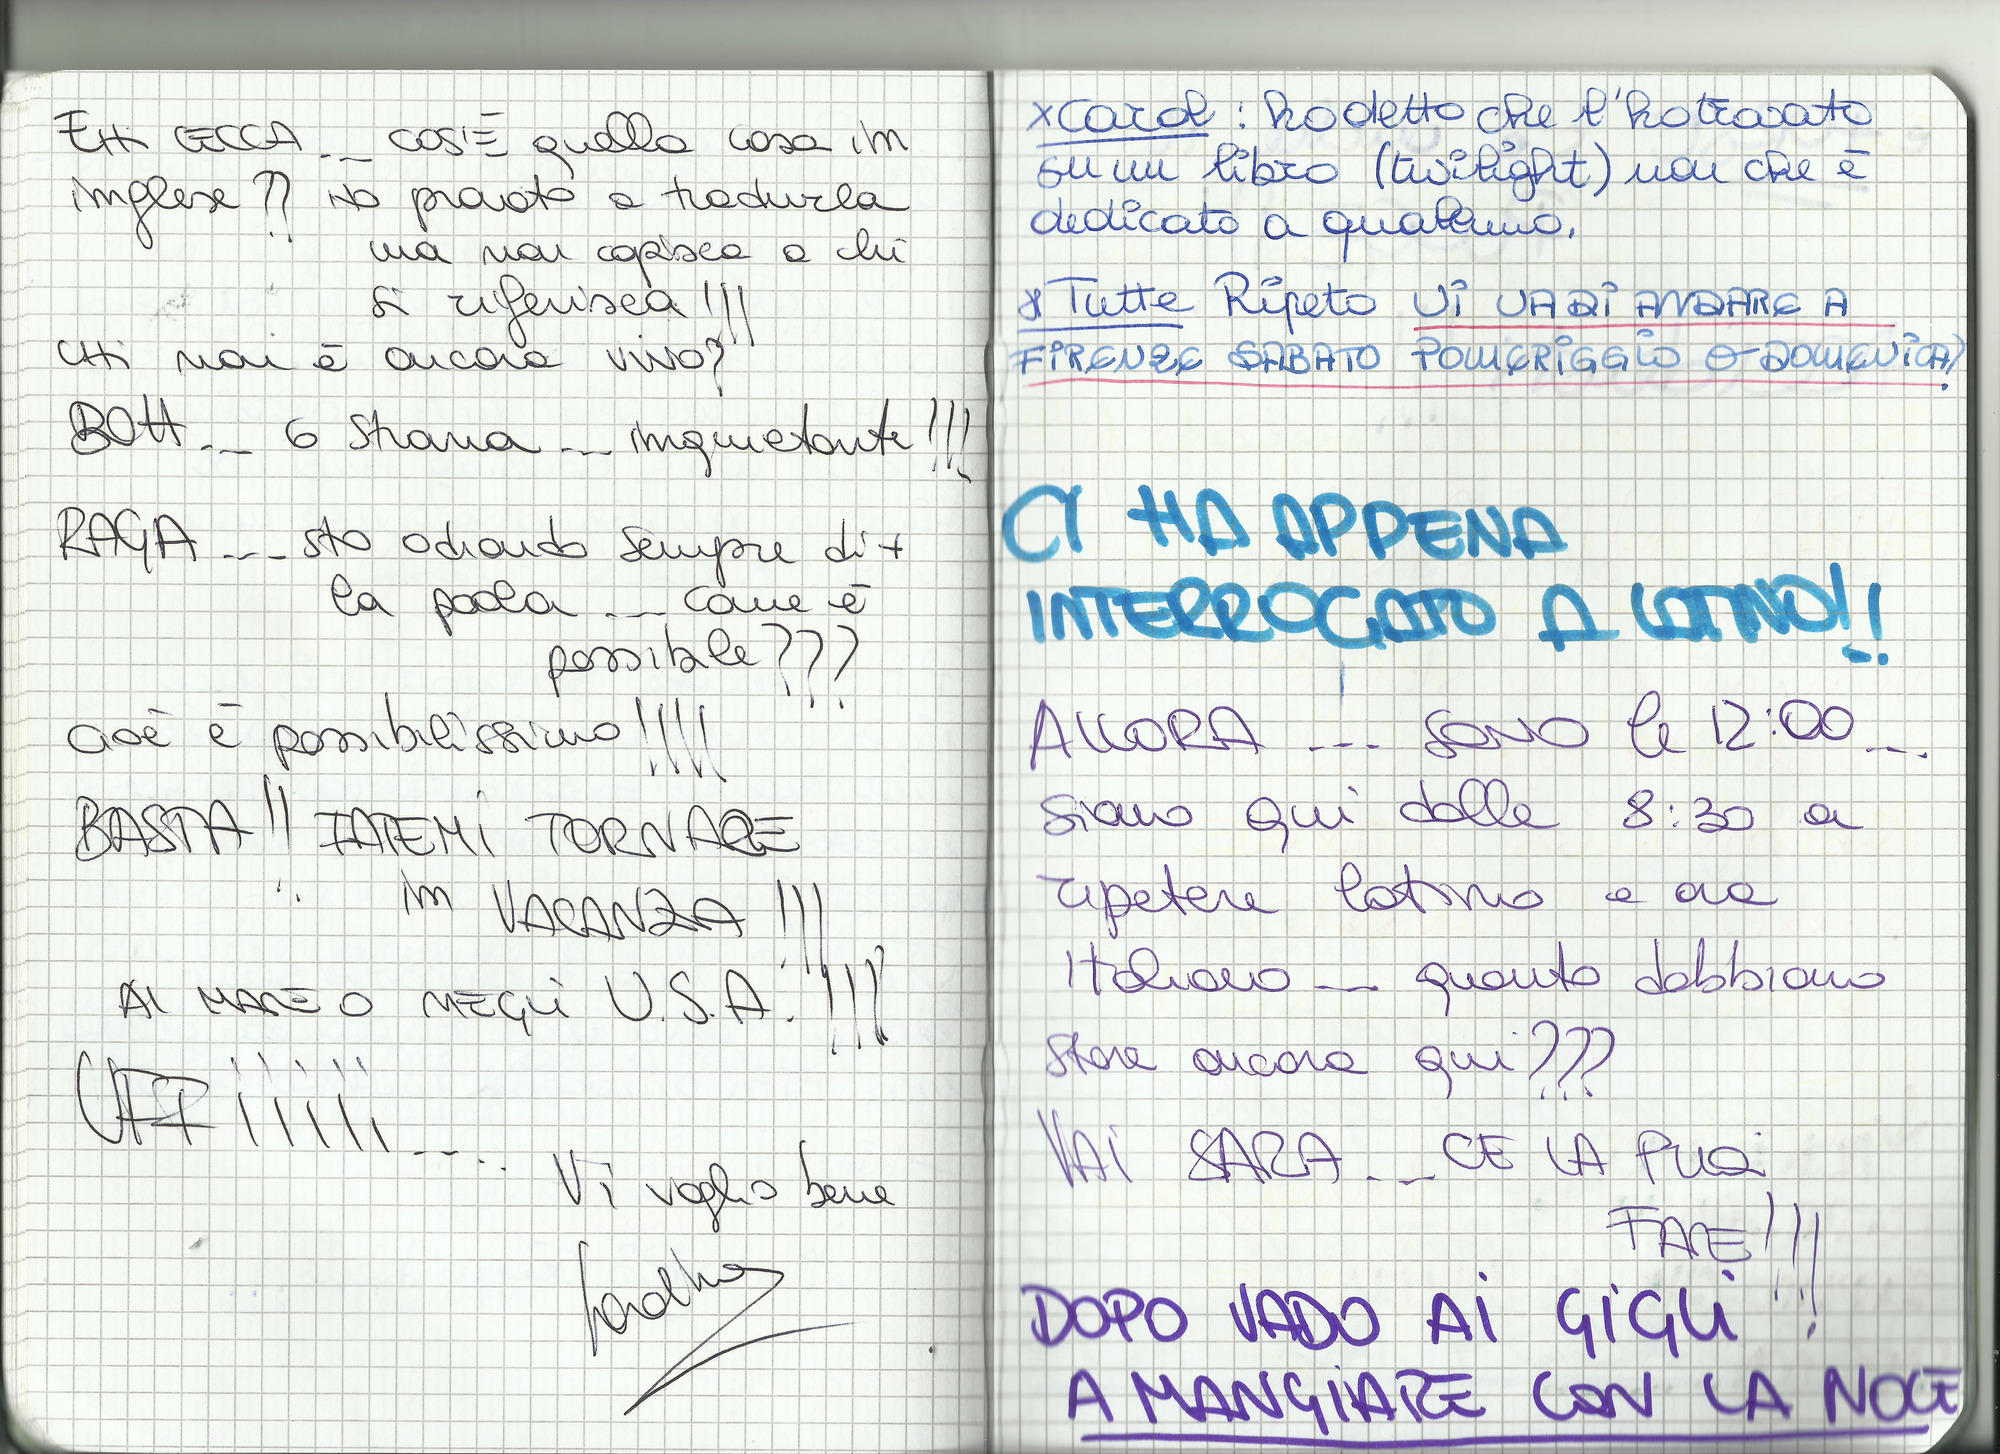 EHI CECCA... COS'È quella cosa in
inglese?? Ho provato a tradurla
ma non capisco a chi
si riferisca!!!
CHI non è ancora vivo?
BOH... 6 strana... inquietante!!!
RAGA... sto odiando sempre di +
la paola... come è
possibile???
cioè è possibilissimo!!!!
BASTA!! FATEMI TORNARE
in VACANZA!!!
AL MARE O NEGLI U.S.A.!!!
UFF!!!!!....
Vi voglio bene
x Carol: ho detto che l'ho trovato
su un libro (twilight) non che è
dedicato a qualcuno.
x Tutte Ripeto VI VA DI ANDARE A
FIRENZE SABATO POMERIGGIO O DOMENICA?
CI HA APPENA
INTERROGATO A LATINO!!
ALLORA... SONO le 12:00...
siamo qui dalle 8:30 a
ripetere latino e ora
Italiano... quanto dobbiamo
stare ancora qui???
VAI SARA... CE LA PUOI
FARE!!!
DOPO VADO AI GIGLI
A MANGIARE CON LA NOCE